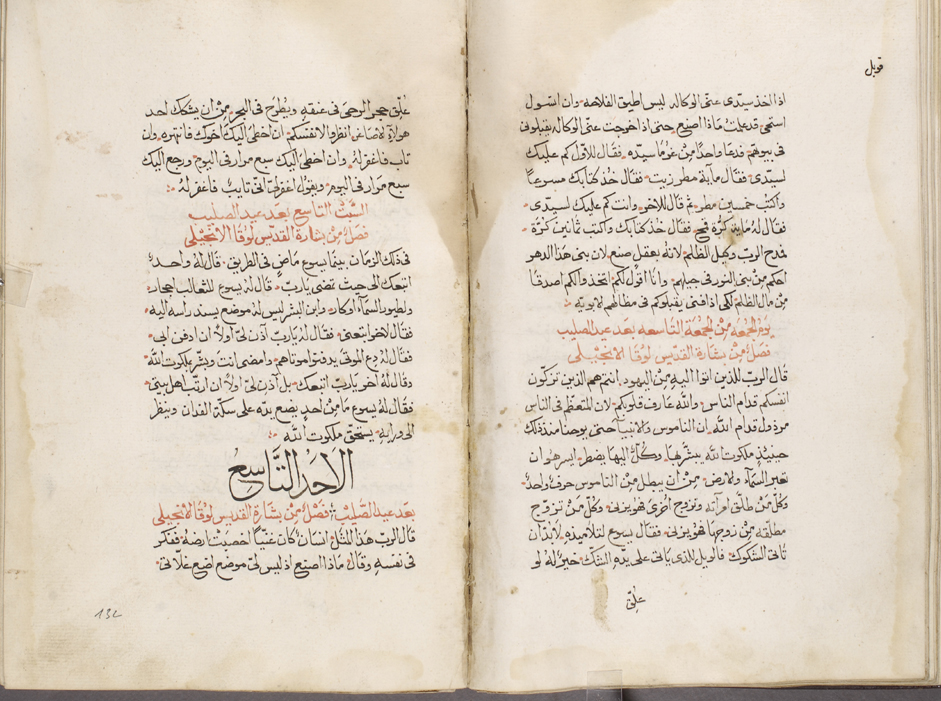 قوبل
اذا اخذ سيدى عنى الوكاله ليس اطيق الفلاحه وان اتسول
استحى قد علمت ماذا اصنع حتى اذا اخرجت عن الوكاله يقبلونى
فى بيوتهم فدعا واحدًا من غرما سيده فقال للاول كم عليك
لسيدى فقال مايه مطر زيت فقال خذ كتابك مسرعًا
واكتب خمسين مطر ثم قال للاخر وانت كم عليك لسيدى
فقال له مايه كرّة قمح فقال خذ كتابك واكتب ثمانين كرّة
فمدح الرب وكيل الظالم لانه بعقل صنع لان بنى هذا الدهر
احكم من بنى النور فى جيلهم وانا اقول لكم اتخذوا لكم اصدقا
من مال الظلم لكى اذا فنى يقبلوكم فى مظالهم الابديه
يوم الجمعه من الجمعة التاسعه بعد عيد الصليب
فصل من بشارة القديس لوقا الانجيلى
قال الرب للذين اتوا اليه من اليهود انتم هم الذين تزكون
انفسكم قدام الناس والله عارف قلوبكم لان المتعظم فى الناس
مرذول قدام الله ان الناموس والانبيا حتى يوحنا منذ ذلك
حينيذ ملكوت الله يبشر بها وكل اليها يضطر ايسر هو ان
تعبر السمآ والارض من ان يبطل من الناموس حرف واحد
وكل من طلق امرآته وتزوج اخرى فهو يزنى وكل من تزوج
مطلقه من زوجها فهو يزنى فقال يسوع لتلاميذه لابد ان
تاتى الشكوك فالويل للذى ياتى على يده الشك خير له لو
علق
علق حجر الرحى فى عنقه ويطرح فى البحر من ان يشكك احد
هولآء الاصاغر انظروا لانفسكم ان اخطى اليك اخوك فانتهره وان
تاب فاغفر له وان اخطى اليك سبع مرار فى اليوم ورجع اليك
سبع مرار فى اليوم ويقول اغفر لى انى تايب فاغفر له
السبت التاسع بعد عيد الصليب
فصل من بشارة القديس لوقا الانجيلى
فى ذلك الزمان بينما يسوع ماض فى الطريق قال له واحد
اتبعك الى حيث تمضى يارب قال له يسوع للثعالب اجحار
ولطيور السمآء اوكار وابن البشر ليس له موضع يسند راسه اليه
فقال لاخر اتبعنى فقال له يارب آذن لى اولاً ان ادفن ابى
فقال له دع الموتى يدفنوا موتاهم وامضى انت وبشر بملكوت الله
وقال له اخر يارب اتبعك بل آذن لى اولاً ان ارتب اهل بيتى
فقال له يسوع ما من احدٍ يضع يده على سكة الفدان وينظر
الى ورايه يستحق ملكوت الله
الاحد التاسع
بعد عيد الصليب فصل من بشارة القديس لوقا الانجيلى
قال الرب هذا المثل انسان كان غنيًا اخصبت ارضه ففكر
فى نفسه وقال ماذا اصنع اذ ليس لى موضع اضع غلاتى
132